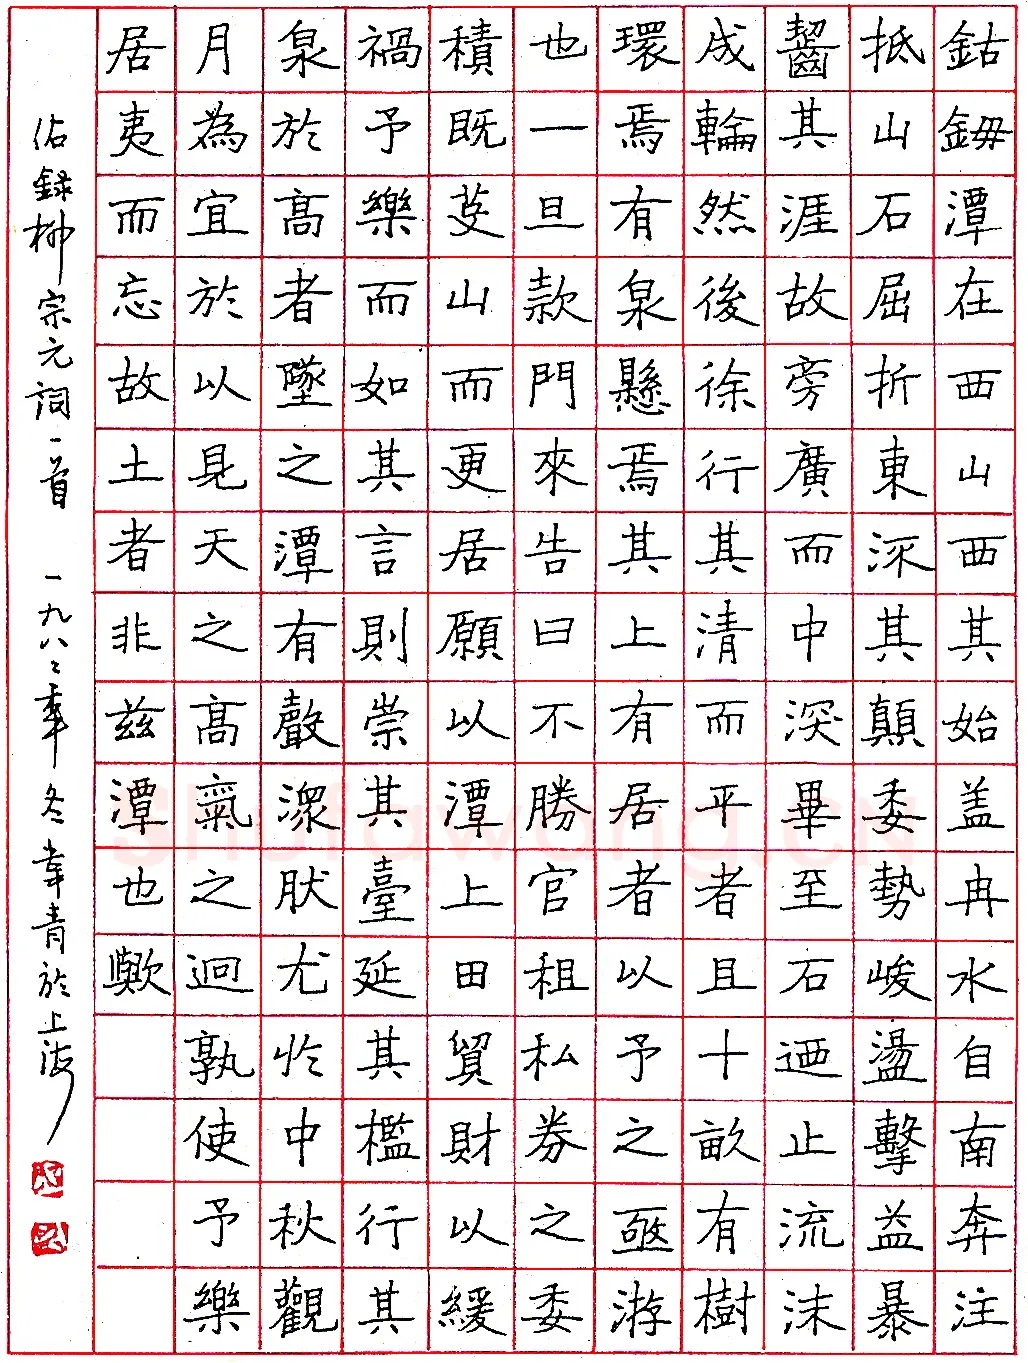 鈷鉧潭在西山西其始盖冉水自南奔注
抵山石屈折東流其顛委勢峻盪擊益暴
齧其涯故旁廣而中深畢至石迺止流沫
成輪然後徐行其清而平者且十畝有樹
環焉有泉懸焉其上有居者以予之亟游
也一旦款門來告曰不勝官租私券之委
積既芟山而更居願以潭上田貿財以緩
禍予樂而如其言則崇其臺延其檻行其
泉於髙者墜之潭有聲潀肰尤於中秋觀
月為宜於以見天之髙氣之迥孰使予樂
居夷而忘故土者非兹潭也歟
佑錄柳宗元詞一首 一九八二年冬韋青於上海
Shufawang.CN